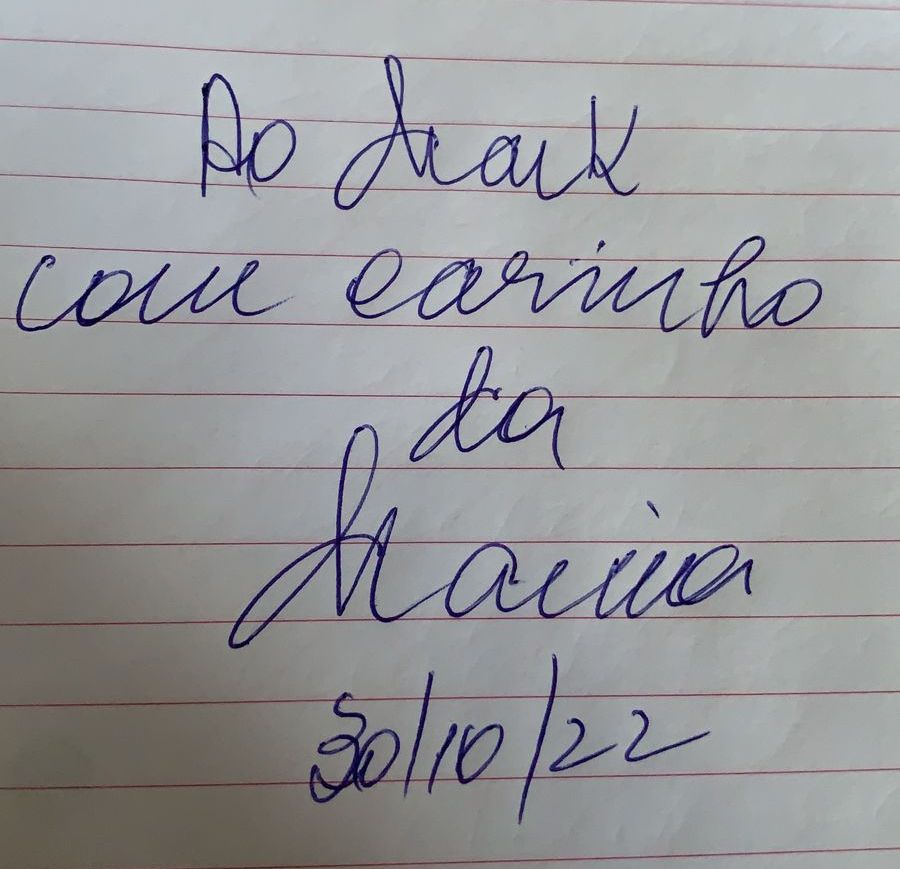 Ao Mark
com carinho
da
Marina
30/10/22